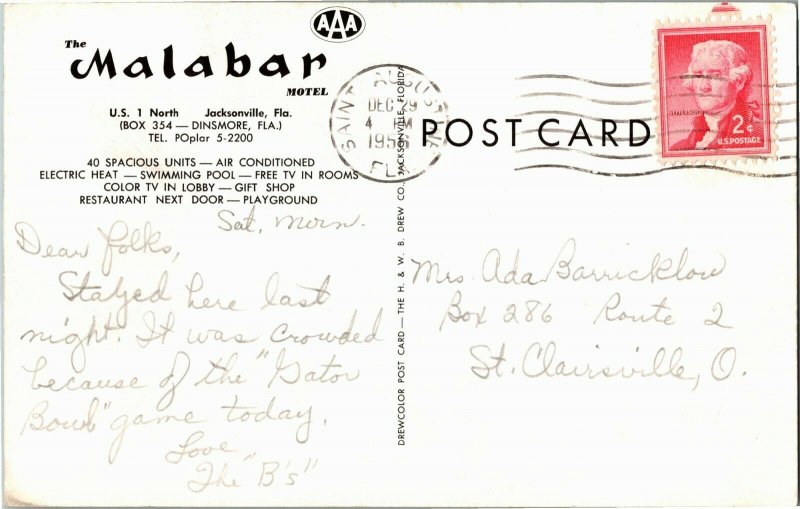 AAA
The
Malabar
MOTEL
U.S. 1 North Jacksonville, Fla.
(BOX 354 — DINSMORE, FLA.)
TEL. POplar 5-2200
40 SPACIOUS UNITS — AIR CONDITIONED
ELECTRIC HEAT — SWIMMING POOL — FREE TV IN ROOMS
COLOR TV IN LOBBY — GIFT SHOP
RESTAURANT NEXT DOOR — PLAYGROUND
Sat. Morn.
Dear folks,
Stayed here last
night. It was crowded
because of the "Gator
Bowl" game today.
Love
The "B's"
DREWCOLOR POST CARD — THE H. & W. B. DREW CO., JACKSONVILLE, FLORIDA
SAINT AUGUSTINE
DEC 29
4 PM
FLA.
POST CARD
2¢
U.S. POSTAGE
Mrs. Ada Barricklow
Box 286 Route 2
St. Clairsville, O.